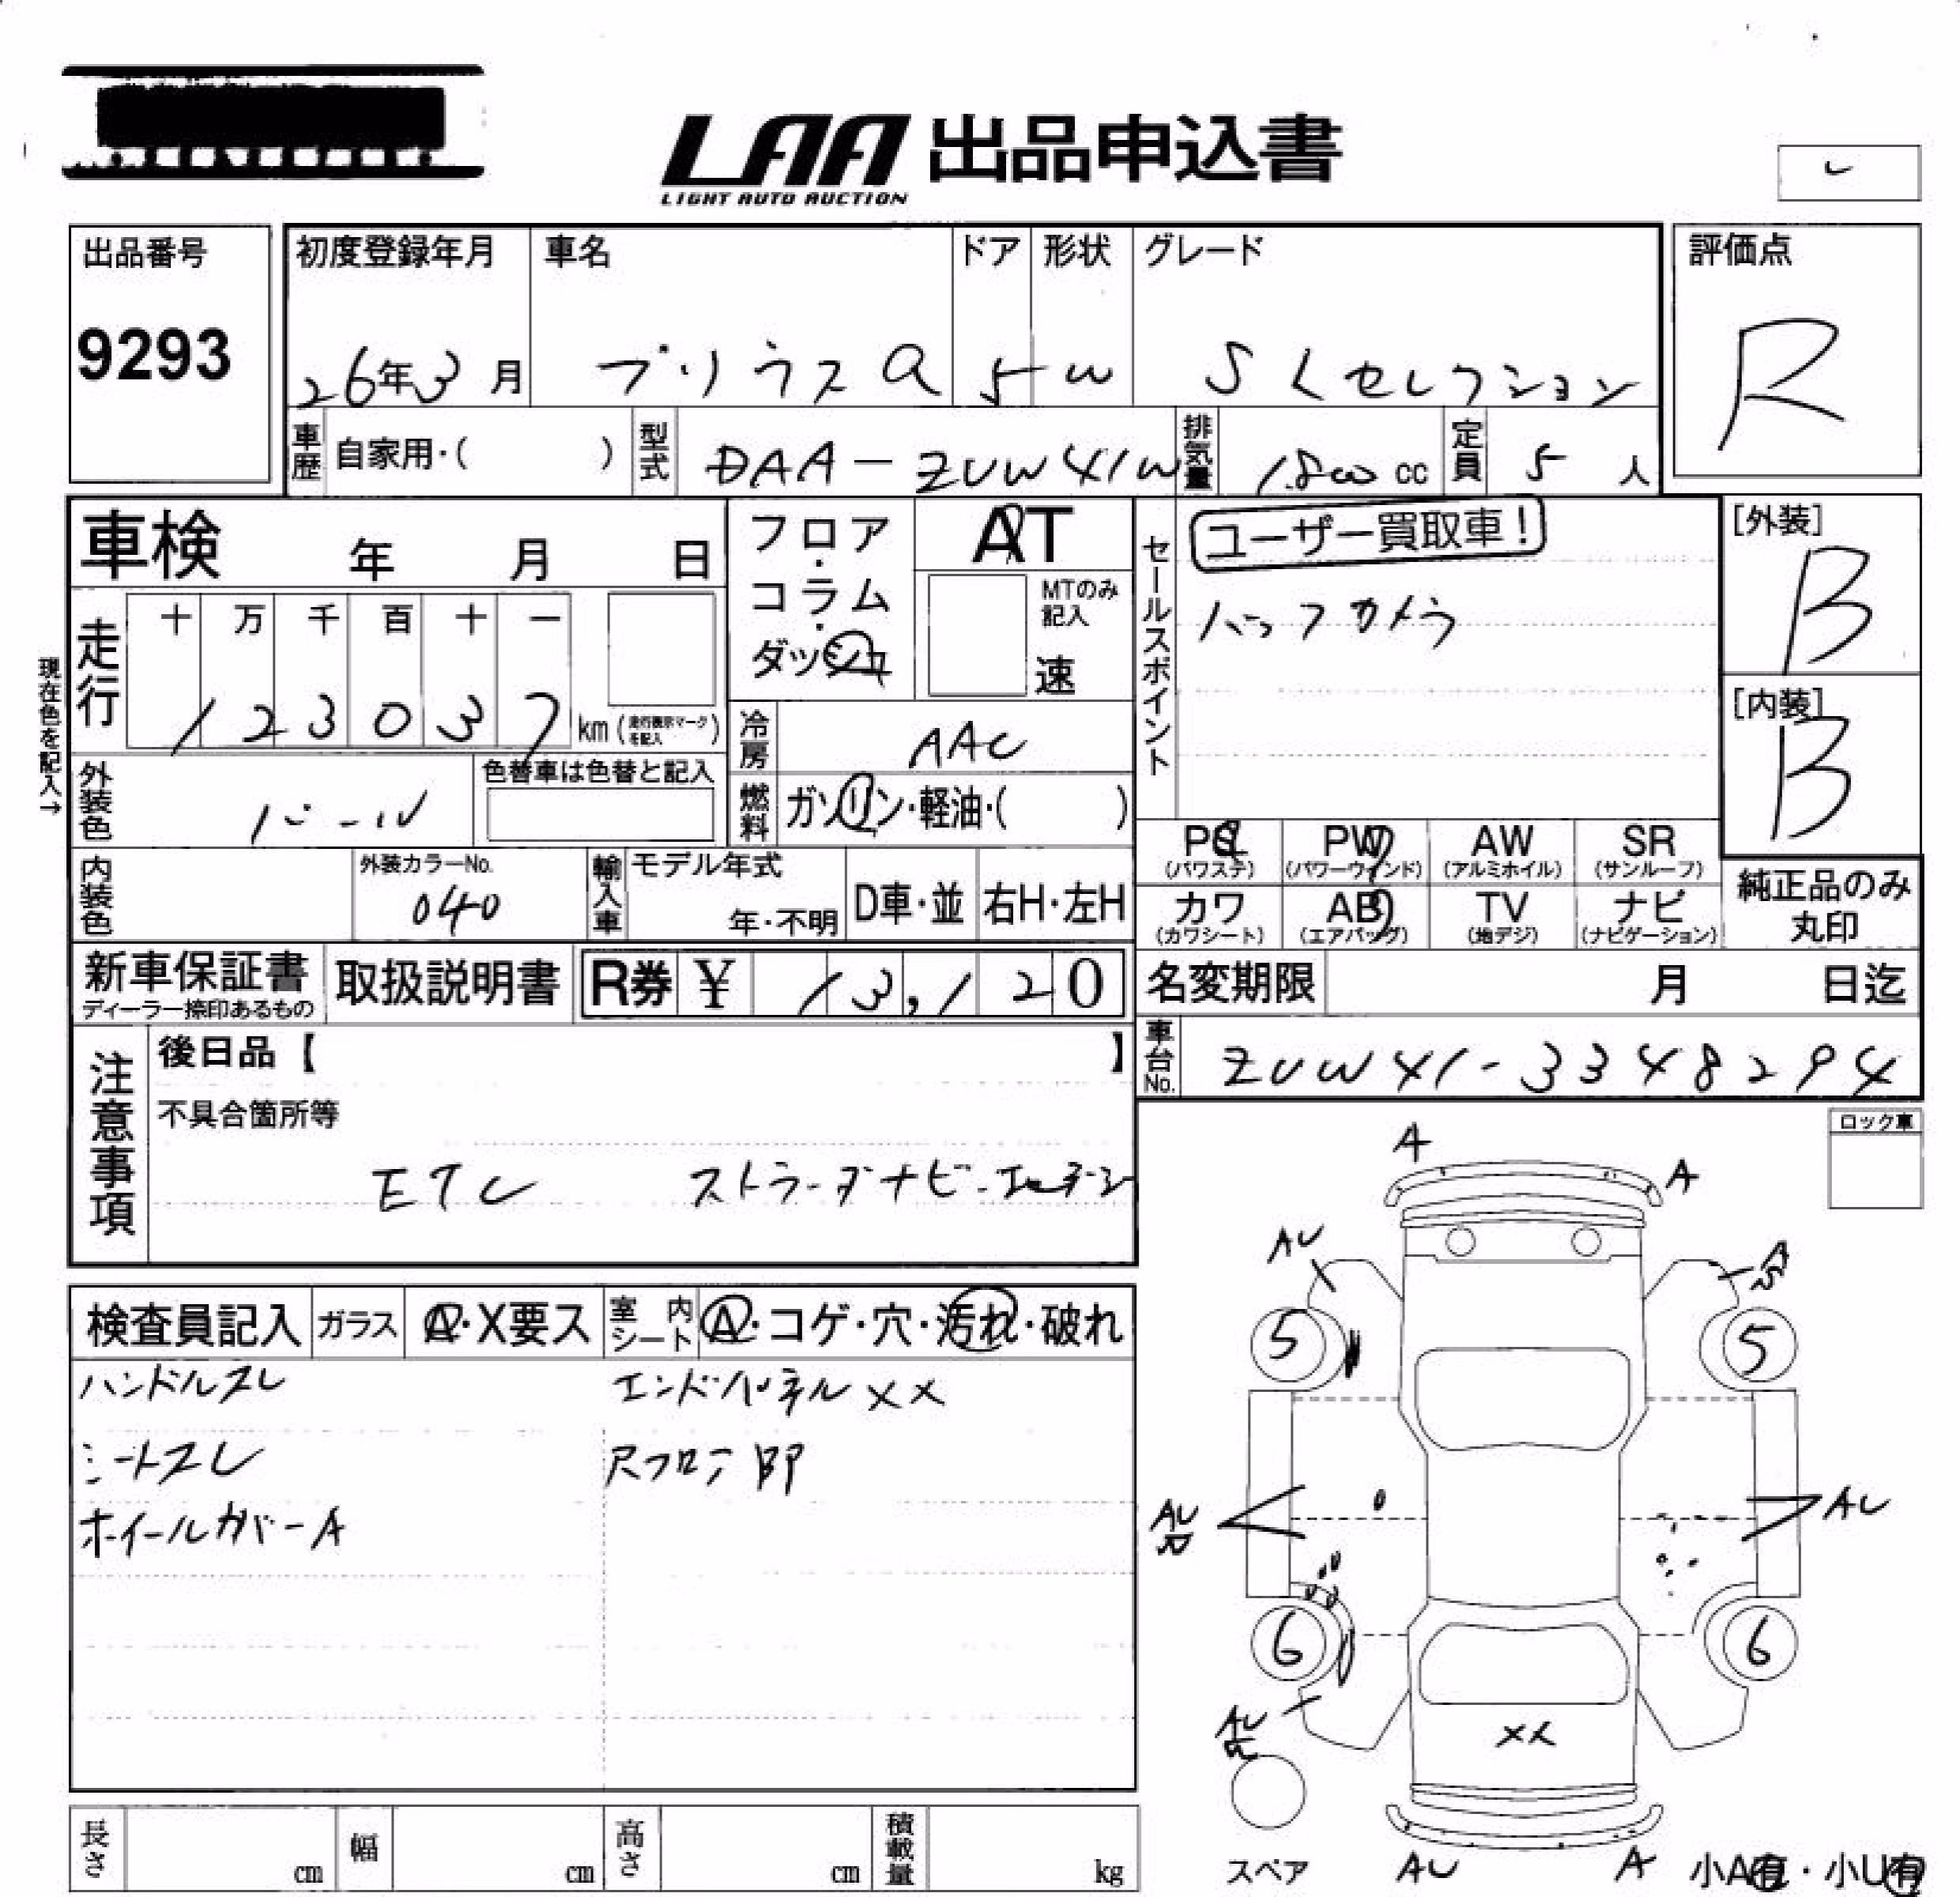 LAA 出品申込書
LIGHT AUTO AUCTION
出品番号
9293
初度登録年月
26年3月
車名
プリウスα
ドア
5
形状
W
グレード
S Lセレクション
評価点
R
車歴
自家用・( )
型式
DAA-ZVW41W
排気量
1800 cc
定員
5 人
車検 年 月 日
現在色を記入→
走行
十 万 千 百 十 一
1 2 3 0 3 7 km (走行表示マークを記入)
フロア・コラム・ダッシュ
AT
MTのみ記入
速
冷房
AAC
燃料
ガソリン・軽油・( )
外装色
パール
色替車は色替と記入
内装色
外装カラーNo.
040
輸入車
モデル年式
年・不明
D車・並
右H・左H
新車保証書
ディーラー捺印あるもの
取扱説明書
R券 ¥ 13,120
セールスポイント
ユーザー買取車!
バックカメラ
[外装]
B
[内装]
B
PS (パワステ)
PW (パワーウィンド)
AW (アルミホイル)
SR (サンルーフ)
カワ (カワシート)
AB (エアバッグ)
TV (地デジ)
ナビ (ナビゲーション)
純正品のみ丸印
名変期限 月 日迄
車台No.
ZVW41-3348294
注意事項
後日品【 】
不具合箇所等
ETC ストラーダナビ
ロック車
検査員記入
ガラス
A・X要ス
室内シート
A・コゲ・穴・汚れ・破れ
ハンドルスレ
シートスレ
ホイールカバーA
エンドパネルXX
Rフロア部P
A
A
AU
A
5
5
AU
AU
6
6
AU
XX
AU
A
スペア
小A有・小U有
長さ cm
幅 cm
高さ cm
積載量 kg